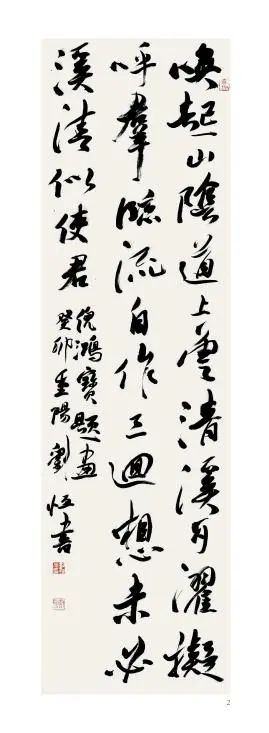 喚起山陰道上雲清溪可濯擬
呼羣臨流自作三迴想未必
溪清似使君
倪鴻寶題畫
癸卯重陽劉恒書
2